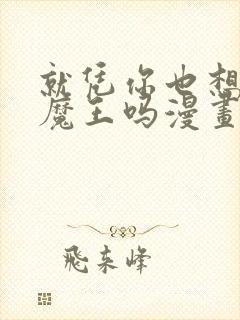 就凭你也想
魔王吗漫畫
飛来峰